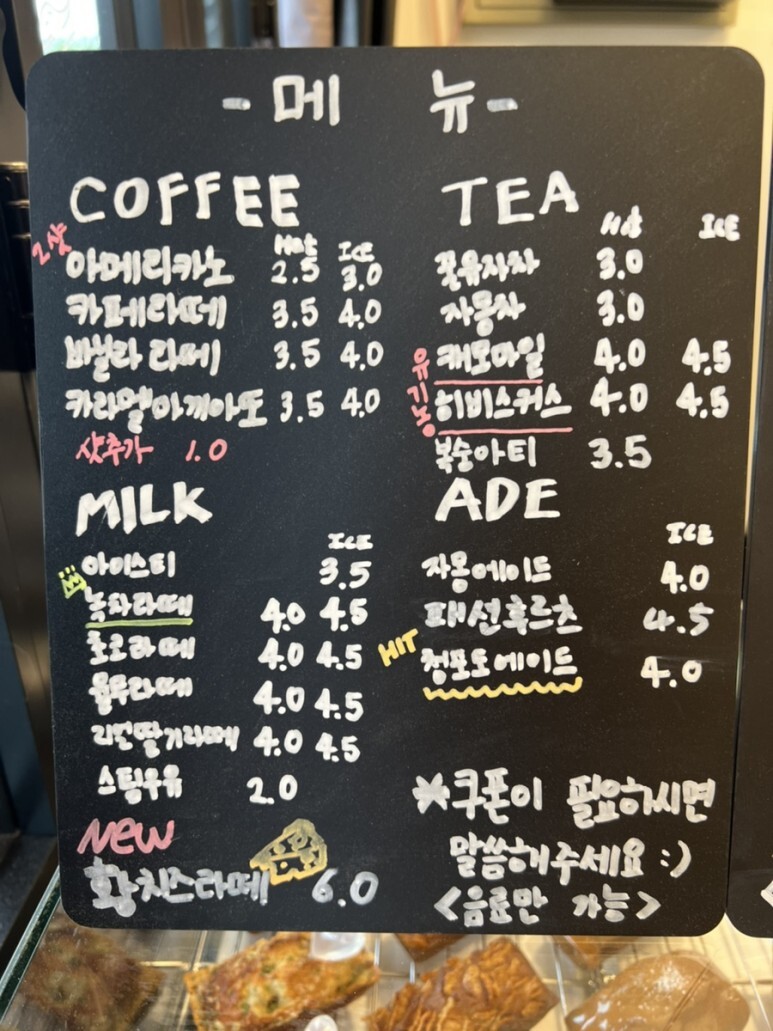 - 메 뉴 -
COFFEE
Hot ICE
2샷
아메리카노 2.5 3.0
카페라떼 3.5 4.0
바닐라 라떼 3.5 4.0
카라멜마끼아또 3.5 4.0
샷추가 1.0
MILK
ICE
아이스티 3.5
녹차라떼 4.0 4.5
초코라떼 4.0 4.5
율무라떼 4.0 4.5
리얼딸기라떼 4.0 4.5
스팀우유 2.0
NEW
황치즈라떼 6.0
TEA
Hot ICE
꿀유자차 3.0
자몽차 3.0
유기농
캐모마일 4.0 4.5
히비스커스 4.0 4.5
복숭아티 3.5
ADE
ICE
자몽에이드 4.0
패션후르츠 4.5
HIT
청포도에이드 4.0
※쿠폰이 필요하시면
말씀해주세요 :)
<음료만 가능>